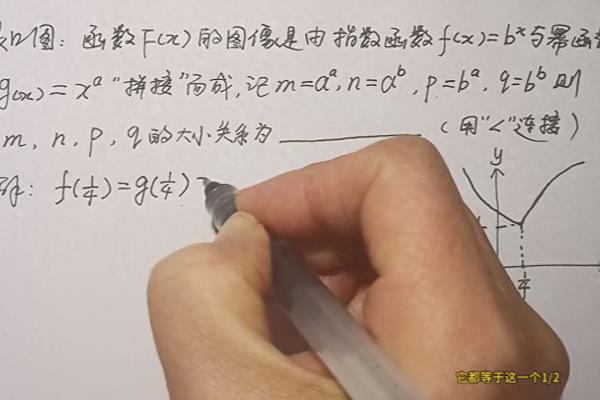 如图：函数F(x)的图像是由指数函数f(x)=bˣ与幂函数
g(x)=xᵃ“拼接”而成，记m=aᵃ，n=aᵇ，p=bᵃ，q=bᵇ则
m，n，p，q的大小关系为____________（用“<”连接）
解：f(1/4)=g(1/4)=
y
1/4
它都等于这一个1/2